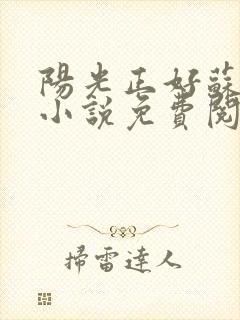 陽光正好蘇
小說免費閱
掃雷達人